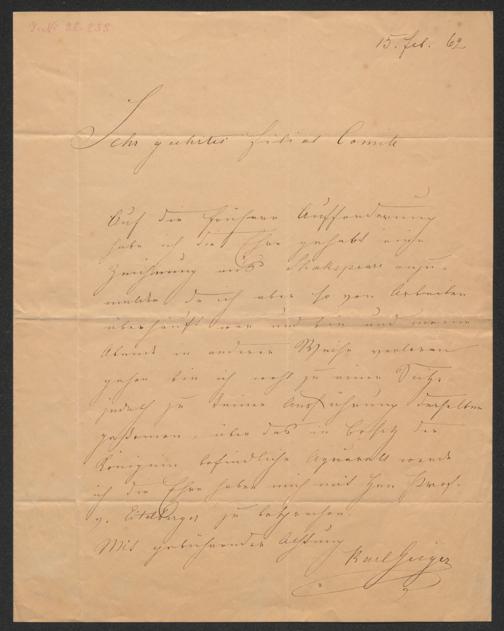 15. Feb. 62
Sehr geehrtes Filial Comite
Auf die frühere Aufforderung
habe ich die Ehre gehabt eine
Zeichnung aus Shakspeare anzu-
melden da ich aber so von Arbeiten
überhäuft war und bin und meine
Abende in anderer Weise verloren
gehen bin ich wohl zu einer Skitze
jedoch zu keiner Ausführung derselben
gekommen. über das in Besitz der
Königinn befindliche Aquarell werde
ich die Ehre haben mich mit Herr Prof.
v. Eitelberger zu besprechen
Mit gebührender Achtung
Karl Geiger